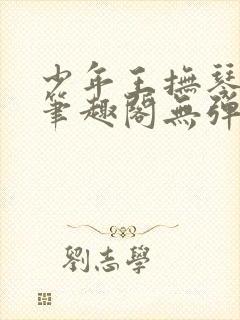 少年王撫琴
筆趣閣無彈
劉志學